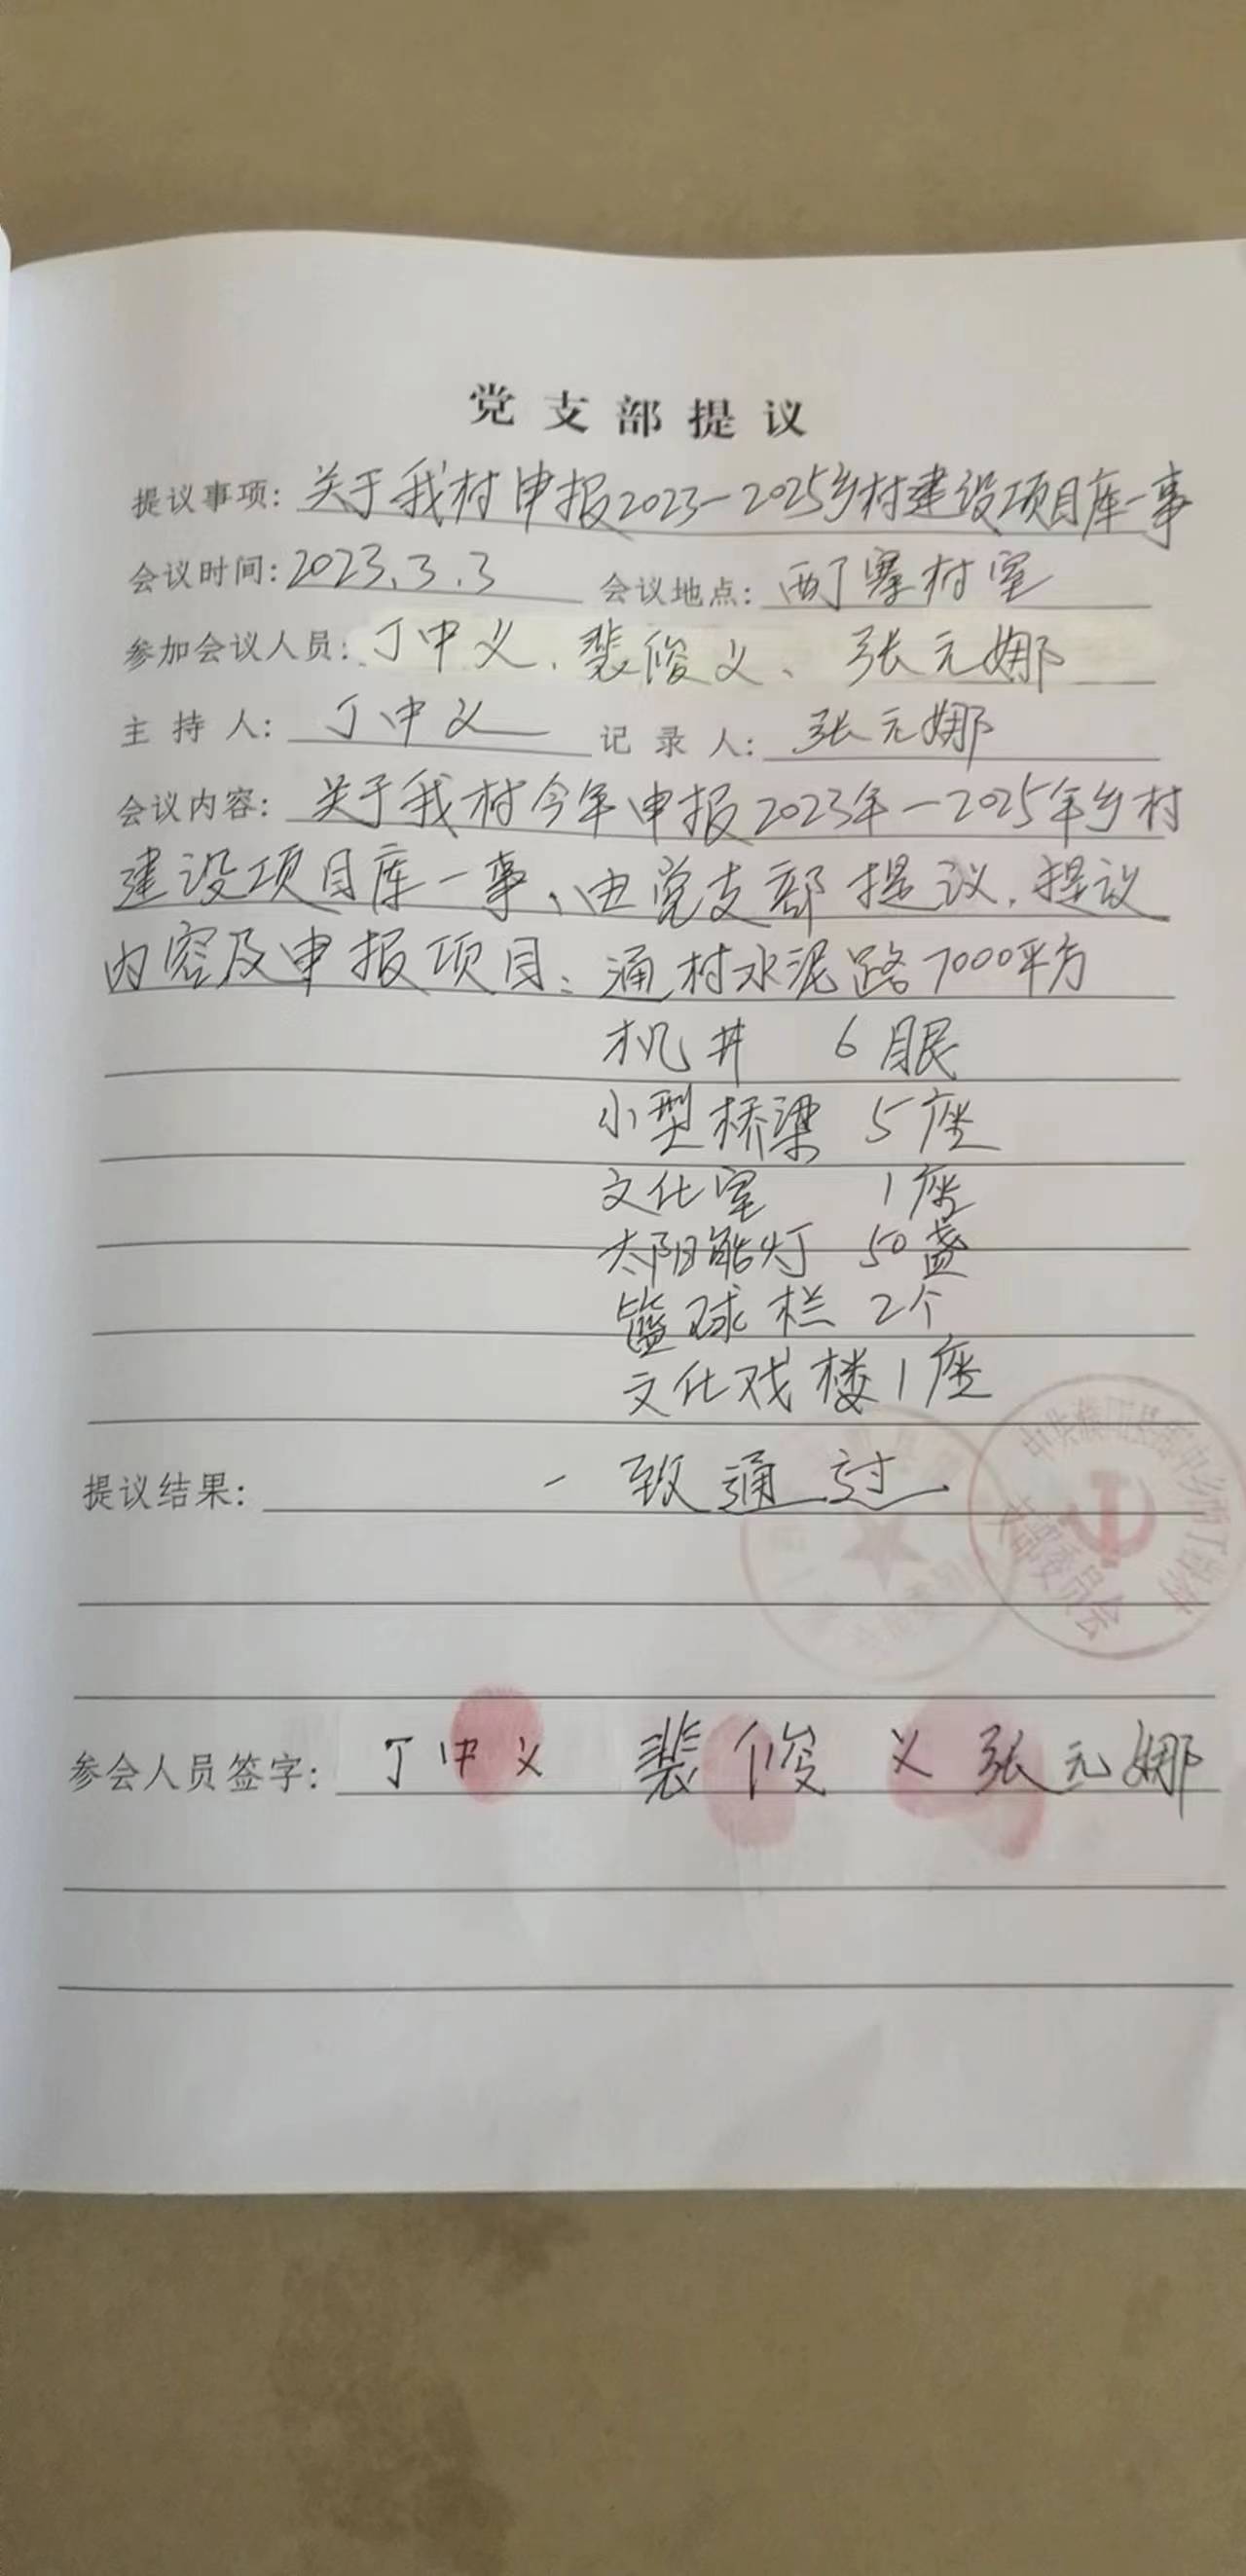 党支部提议
提议事项: 关于我村申报2023-2025乡村建设项目库一事
会议时间: 2023.3.3 会议地点: 西丁寨村室
参加会议人员: 丁中义、裴俊义、张元娜
主持人: 丁中义 记录人: 张元娜
会议内容: 关于我村今年申报2023年-2025年乡村
建设项目库一事、由党支部提议.提议
内容及申报项目: 通村水泥路7000平方
机井 6眼
小型桥梁 5座
文化室 1座
太阳能灯 50盏
篮球栏 2个
文化戏楼1座
提议结果: 一致通过.
支部委员会
参会人员签字: 丁中义 裴俊义 张元娜